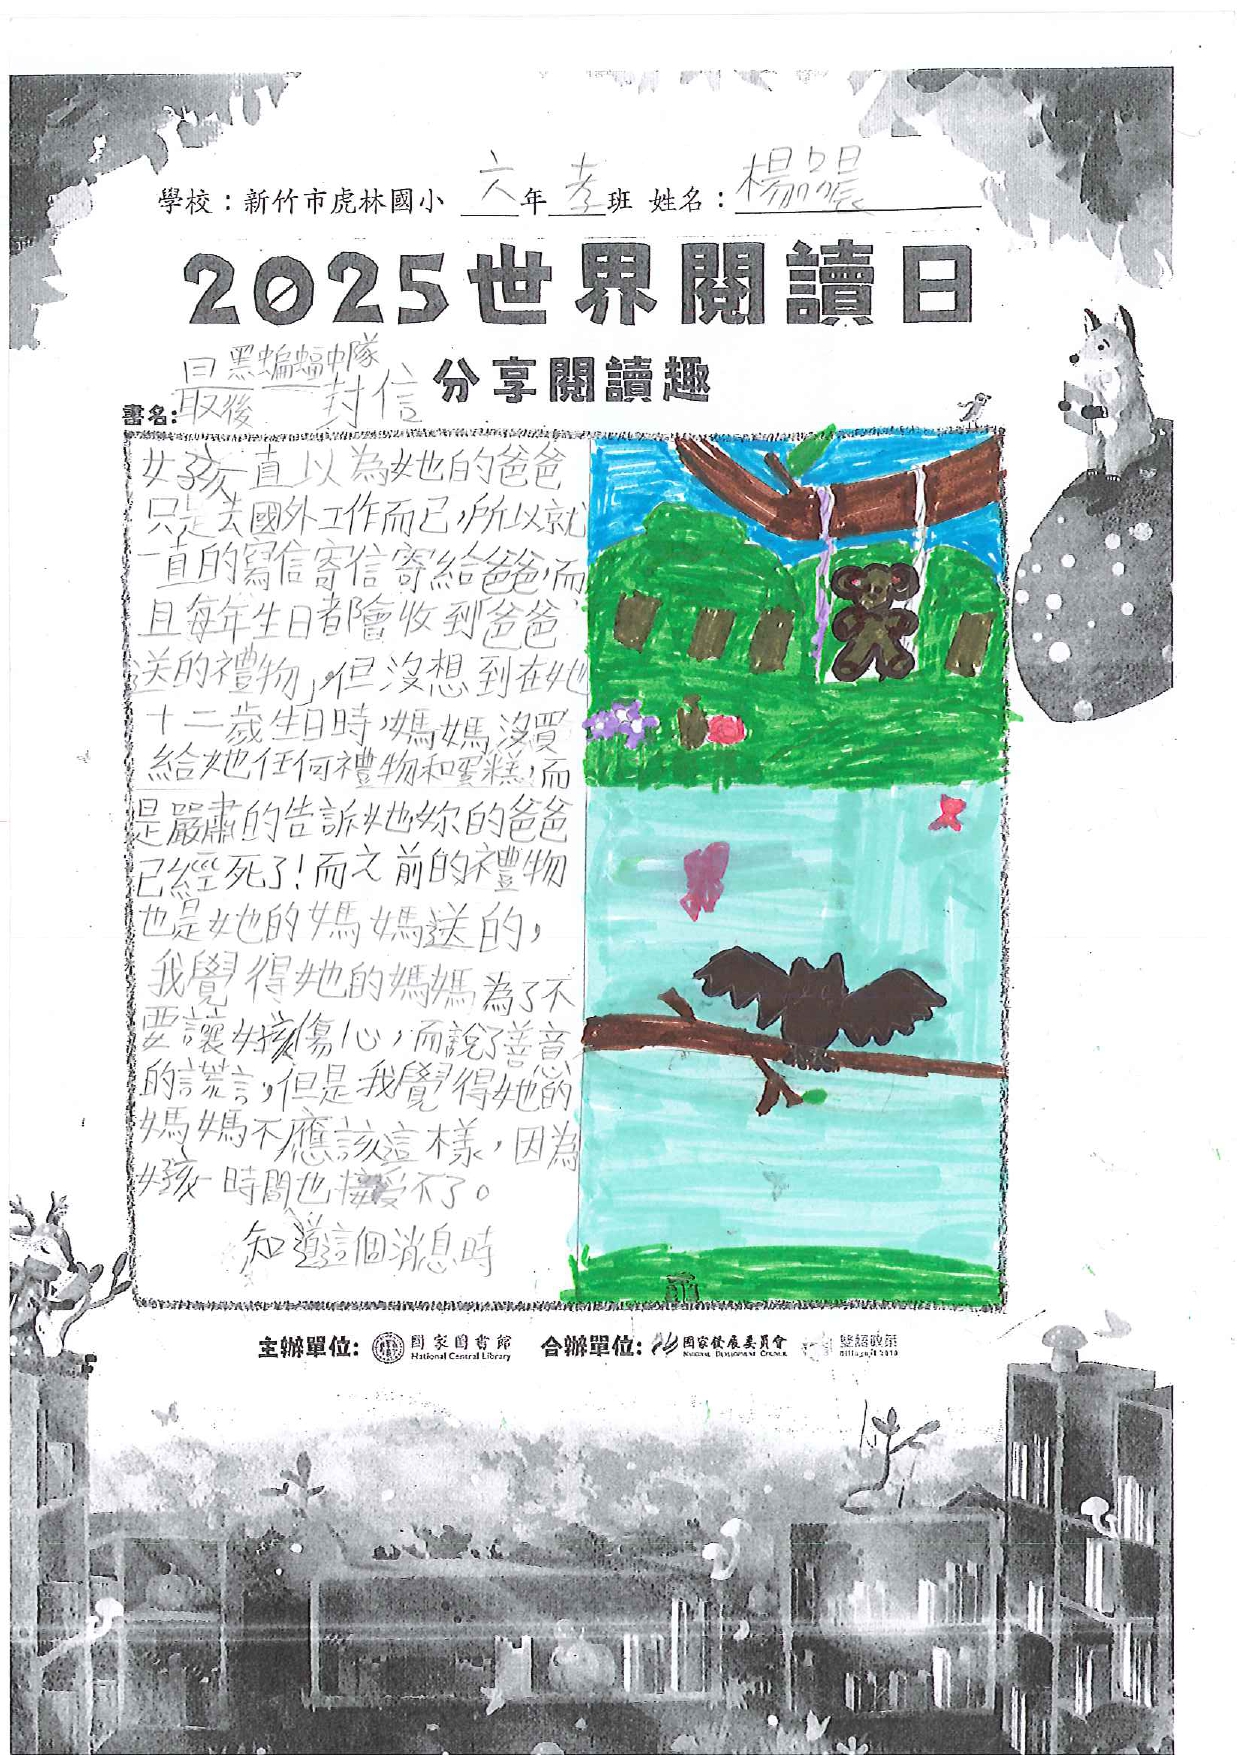 學校：新竹市虎林國小 六年孝班 姓名：楊晨
2025世界閱讀日
分享閱讀趣
書名：黑蝙蝠中隊
最後一封信
女孩一直以為她的爸爸
只是去國外工作而已，所以就
一直的寫信寄信寄給爸爸，而
且每年生日都會收到爸爸
送的禮物，但沒想到在她
十二歲生日時，媽媽沒買
給她任何禮物和蛋糕，而
是嚴肅的告訴她妳的爸爸
已經死了！而之前的禮物
也是她的媽媽送的，
我覺得她的媽媽為了不
要讓女孩傷心，而說了善意
的謊言，但是我覺得她的
媽媽不應該這樣，因為
女孩一時間也接受不了。
知道這個消息時
主辦單位：國家圖書館 National Central Library 合辦單位：國家發展委員會 National Development Council